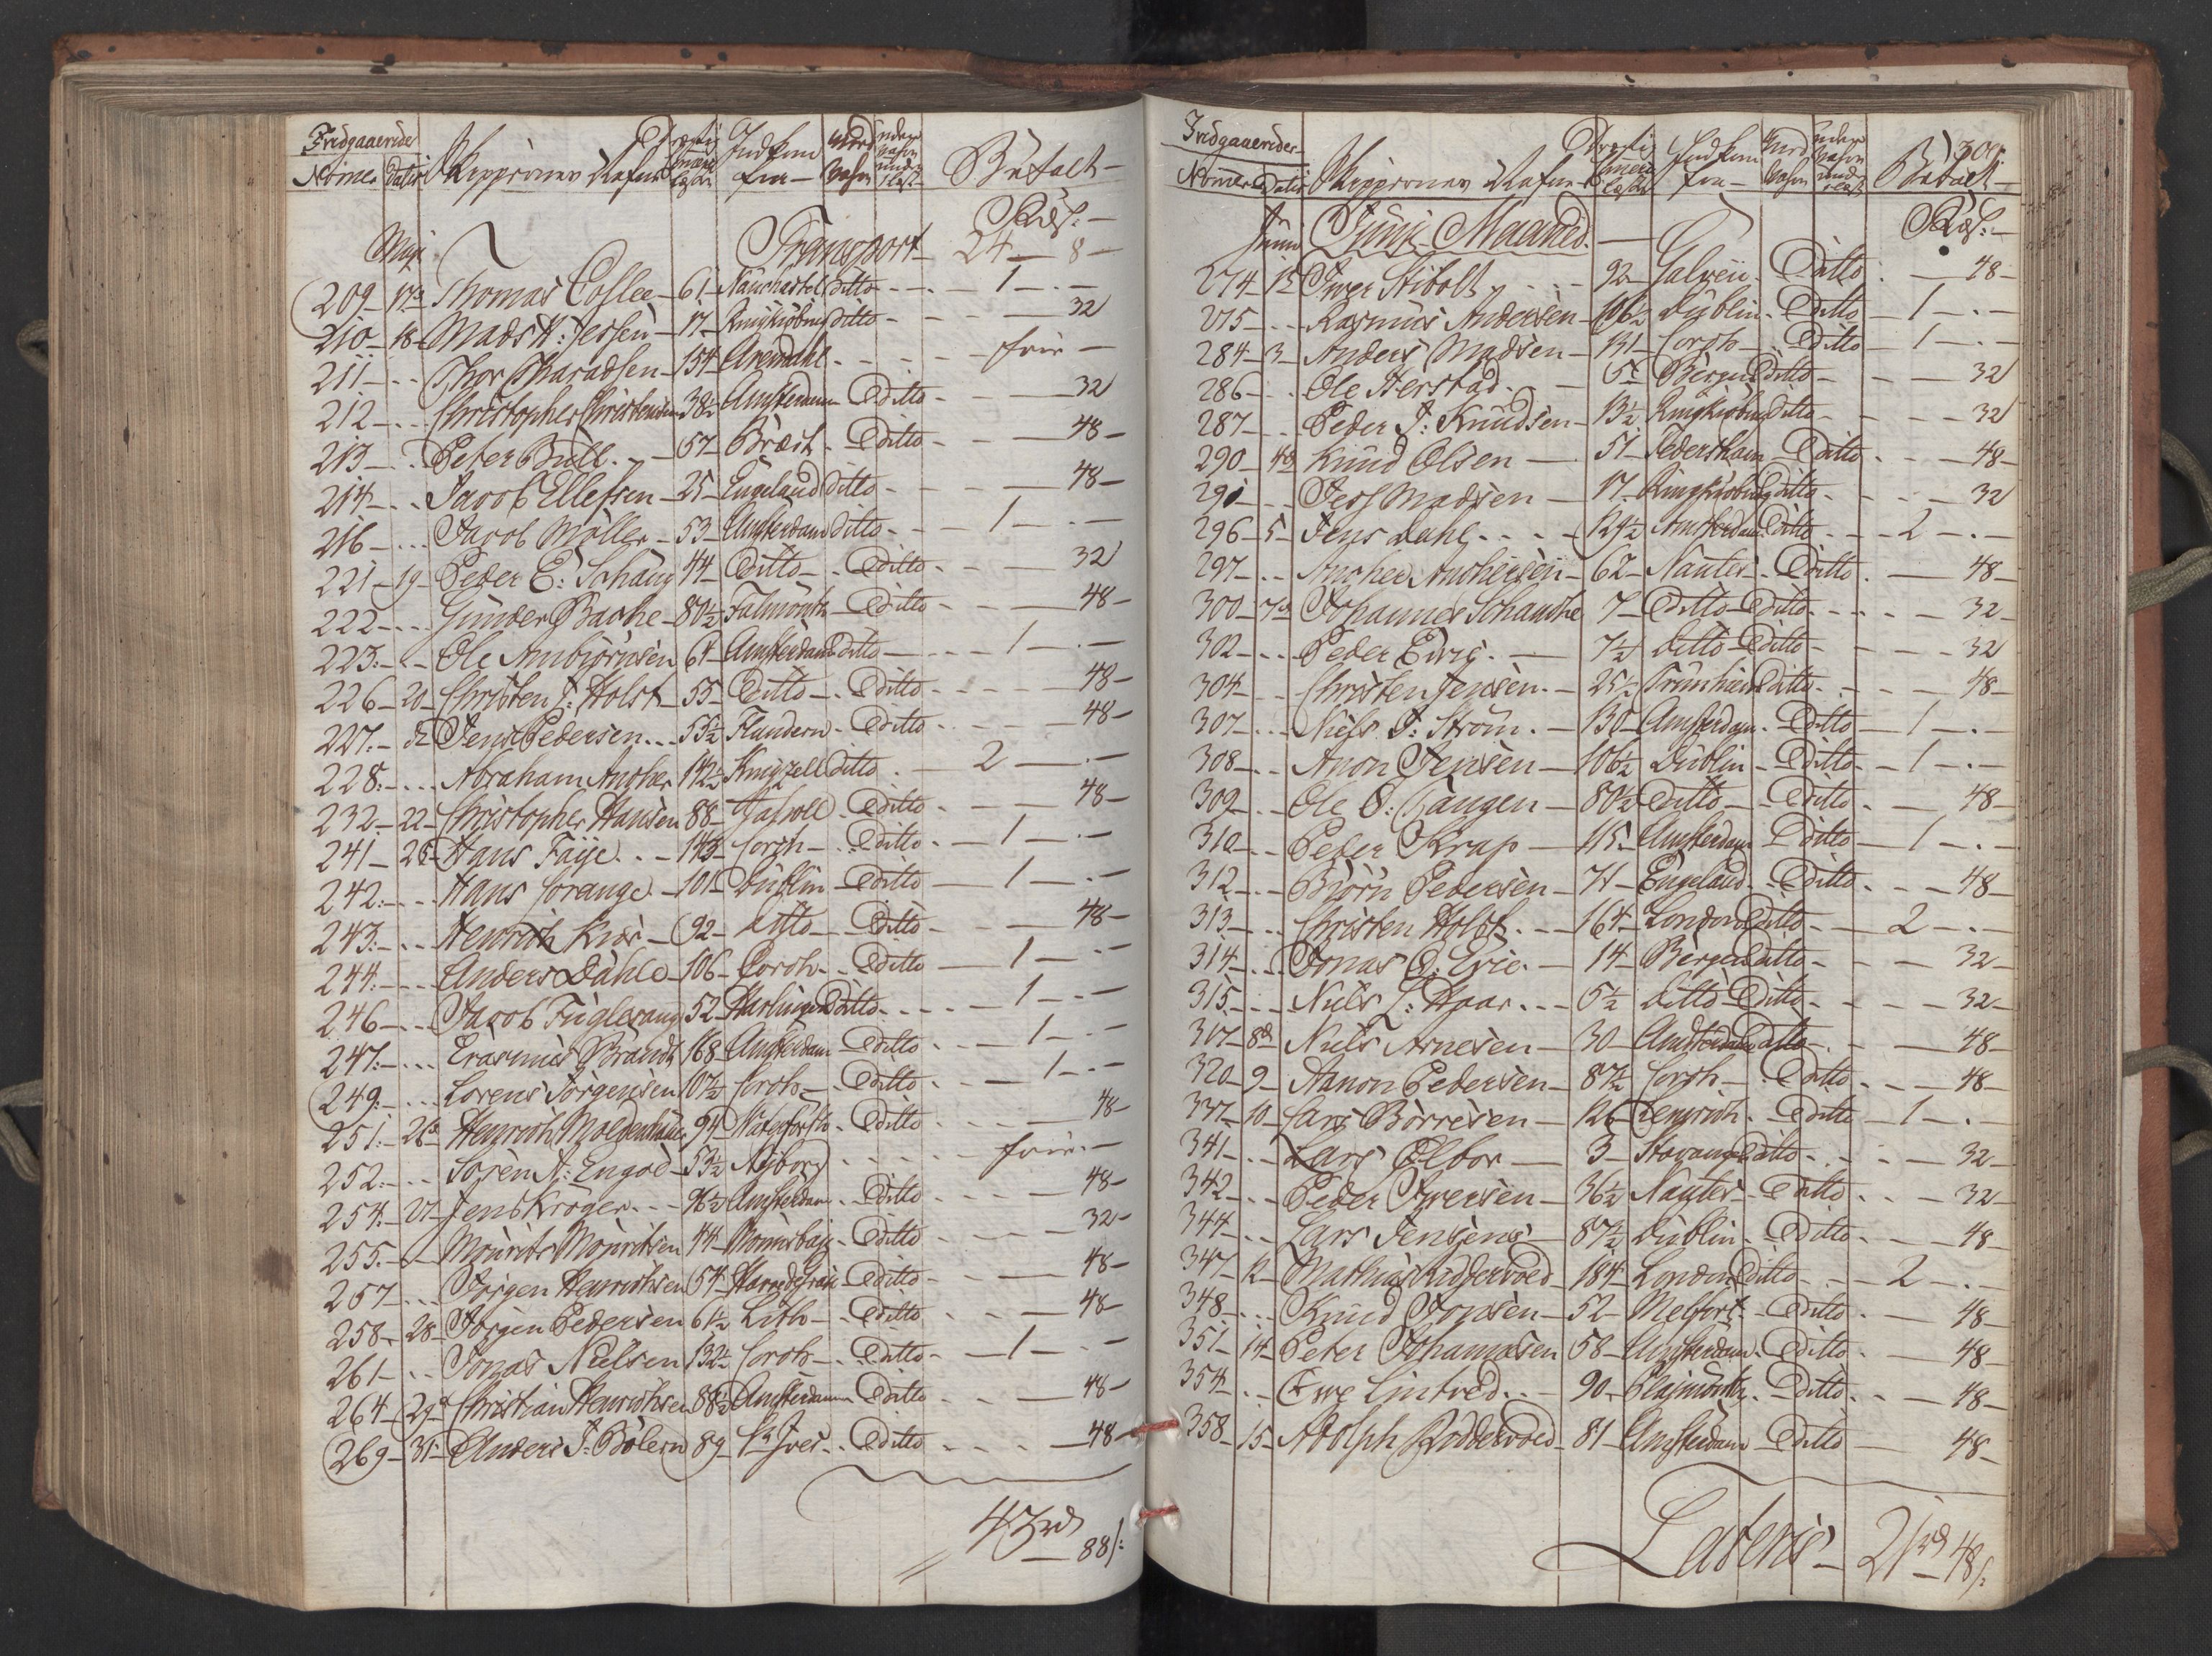 Indgaaende
Nomer Datis Skippernes Nafn Drægtig Comerce læster Indkom fra Betalt
Rdl: s
Maji Transport 24 8
209 17de Thomas Coslee 61 ditto 1
210 18 Mads N: Jessen 17 Ringkiøbing ditto 32
211 Thor Tharadsen 154 Arendahl frie
212 Christopher Christensen 38½ Amsterdam Ditto 32
213 Peter Bull 57 Bræst Ditto 48
214 Jacob Ellefsen 25 Engeland ditto 48
216 Jacob Møller 53 Amsterdam ditto 1
221 19 Peder E: Schaug 44 Ditto Ditto 32
222 Gunder Bache 80½ Falmouth Ditto 48
223 Ole Ambiørnsen 64 Amsterdam ditto 1
226 20 Christen J: Holst 55 Ditto Ditto 48
227 Jens Pedersen 55½ Flandern Ditto 48
228 Abraham Ancher 142½ ditto 2
232 22 Christopher Hansen 88 Ditto 48
241 Hans Faye 143 Corch Ditto 1
242 Hans Corange 101 Dublin Ditto 1
243 Henrich Kiær 92 ditto Ditto 48
244 Anders Dahle 106 Corch Ditto 1
246 Jacob Fuglesang 52 Harlingen Ditto 1
247 Erasmus Brandt 168 Amsterdam Ditto 1
249 Lorens Jørgensen 107½ Corch Ditto 1
251 26 Henrich Moldenhauer 94 Ditto 48
252 Søren A: Engod 53½ Nyborg frie
254 27 Jens Krøger 96½ Amsterdam Ditto 48
255 Mourits Mouritsen 44 Ditto 32
257 Jørgen Henrichsen 54 Ditto 48
258 28 Jørgen Pedersen 61½ Lith Ditto 48
261 Jonas Nielsen 132½ Corch Ditto 1
264 29 Christian Henrichsen 88½ Amsterdam Ditto 48
269 31 Anders J: Bølern 89 St Ives Ditto 48
43rd 88s:
300
Indgaaende
Nomer Datis Skippernes Nafn Drægtig Comerce læster Indkom fra Betalt
Juni Juni Maaned Rdl: s
274 1t Iwer Stibolt 92 Ditto 48
275 Rasmus Andersen 106½ Dublin Ditto 1
284 3 Anders Madsen 131 Corch Ditto 1
286 Ole Herstad Bergen ditto 32
287 Peder J: Knudsen 13½ Ringkiøbing ditto 32
290 4de Knud Olsen 51 Pedersham Ditto 48
291 Madsen 17 Ringkiøbing ditto 32
296 5 Jens Dahl 129½ Amsterdam Ditto 2
297 Ancher Anchersen 62 Nantes Ditto 48
300 7de Johannes Schanche 7 Ditto Ditto 32
302 Peder Ewig 7½ ditto Ditto 32
304 Christen Jensen 25½ Ditto 48
307 Niels J: Strøm 130 Amsterdam Ditto 1
308 Anon Jensen 106½ Dublin Ditto 1
309 Ole O: Gangen 80½ Ditto Ditto 48
310 Peter Krap 115 Amsterdam Ditto 1
312 Biørn Pedersen 71 Engeland Ditto 48
313 Christen Holst 164 London Ditto 2
314 Jonas C: Eric 14 Bergen ditto 32
315 Niels L: Haar 5½ ditto Ditto 32
317 8de Niels Arnesen 30 Amsterdam ditto 48
320 9 Aanon Pedersen 87½ Corch Ditto 48
337 10 Lars Børresen 126 Ditto 1
341 Lars Elbor 3 Stavanger Ditto 32
342 Peder Iwersen 36½ Nantes Ditto 32
344 Lars Jensen 87½ Dublin Ditto 48
347 12 Mathias Ridderwold 184 London Ditto 2
348 Knud Jonsen 52 Melfort Ditto 48
351 14 Peter Johannesen 58 Amsterdam Ditto 48
354 Ewe Lintved 90 Ditto 48
358 15 Adolph Ridderwold 81 Amsterdam Ditto 48
Lateris 21rd 48s: